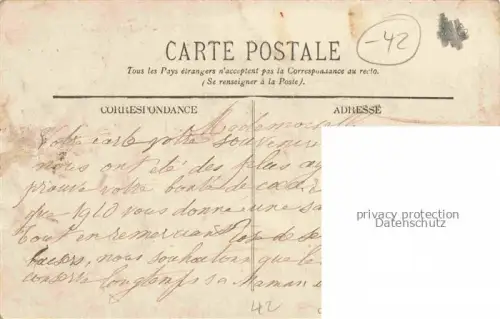 -42
CARTE POSTALE
Tous les Pays étrangers n'acceptent pas la Correspondance au recto.
(Se renseigner à la Poste).
CORRESPONDANCE
ADRESSE
Mademoiselle
Votre carte votre souvenir
nous ont été des plus ag
prouve votre bonté de
que 1910 vous donne une sa
Tout en remerciant de
baisers, nous souhaitons que le
conserve longtemps sa Maman
42
privacy protection
Datenschutz